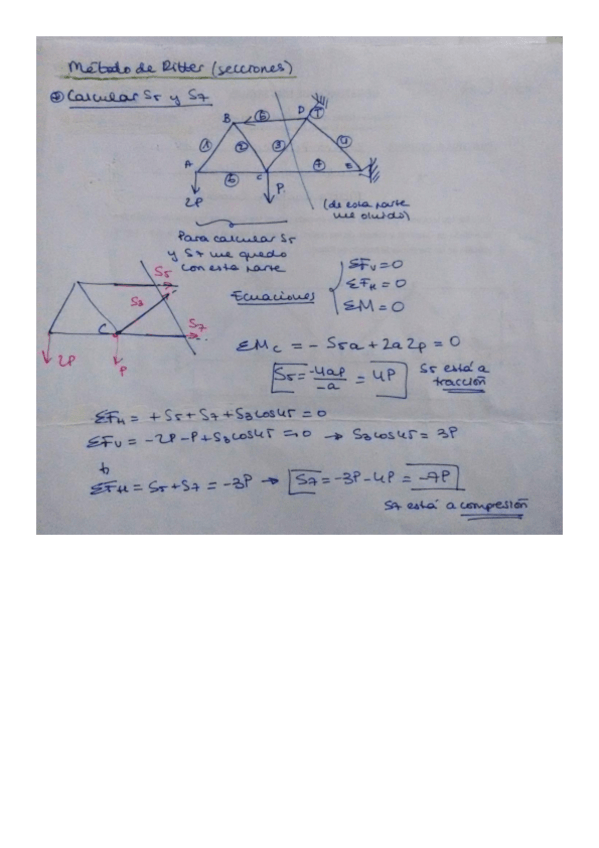 Método de Ritter (secciones)
Calcular S5 y S7
B 5 D
1 2 3 4
A 6 C 7 E
2P P
(de esta parte
me olvido)
Para calcular S5
y S7 me quedo
con esta parte
Ecuaciones
ΣFv = 0
ΣFH = 0
ΣM = 0
S5
S3
C S7
2P P
ΣMc = - S5a + 2a2p = 0
S5 = -4ap/-a = 4P
S5 está a
tracción
ΣFH = + S5 + S7 + S3 cos45 = 0
ΣFv = -2P - P + S3 cos45 = 0 → S3 cos45 = 3P
ΣFH = S5 + S7 = -3P → S7 = -3P - 4P = -7P
S7 está a compresión